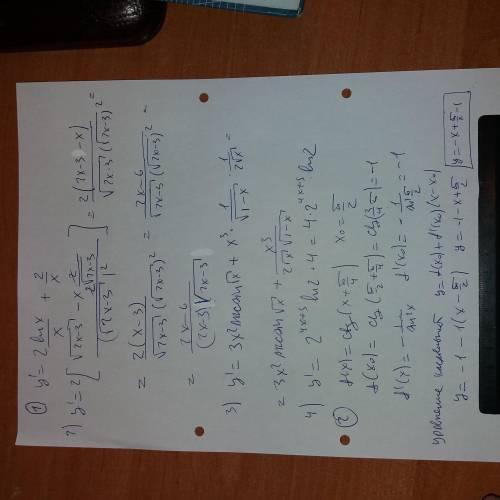 ① y' = 2 lnx / x + 2/x
2) y' = 2 [ (√(2x-3) - x · 2/(2√(2x-3))) / (√(2x-3))² ] = 2(2x-3-x) / (√(2x-3) (√(2x-3))²) =
= 2(x-3) / (√(2x-3) (√(2x-3))²) = (2x-6) / (√(2x-3) (√(2x-3))²) =
= (2x-6) / ((2x-3) √(2x-3))
3) y' = 3x² arcsin√x + x³ · 1/√(1-x) · 1/(2√x) =
= 3x² arcsin√x + x³ / (2√x √(1-x))
4) y' = 2^(4x+3) ln2 · 4 = 4 · 2^(4x+3) · ln2
② f(x) = ctg(x + π/4) x₀ = π/2
f(x₀) = ctg(π/2 + π/4) = ctg(3π/4) = -1
f'(x) = - 1/sin²x f'(x₀) = - 1/sin²π/2 = -1
уравнение касательной y = f(x₀) + f'(x₀)(x-x₀)
y = -1 - 1(x - π/2) y = -1 - x + π/2 y = -x + π/2 - 1